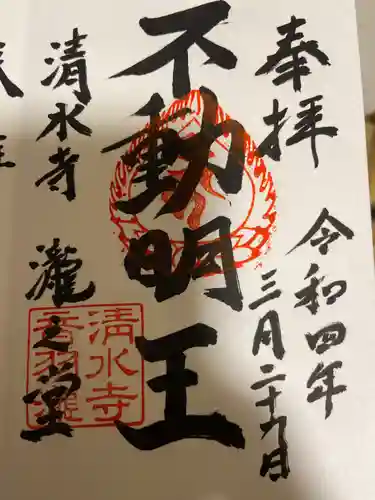 奉拝
令和四年
三月二十九日
不動明王
清水寺
瀧之堂
清水寺
音羽瀧